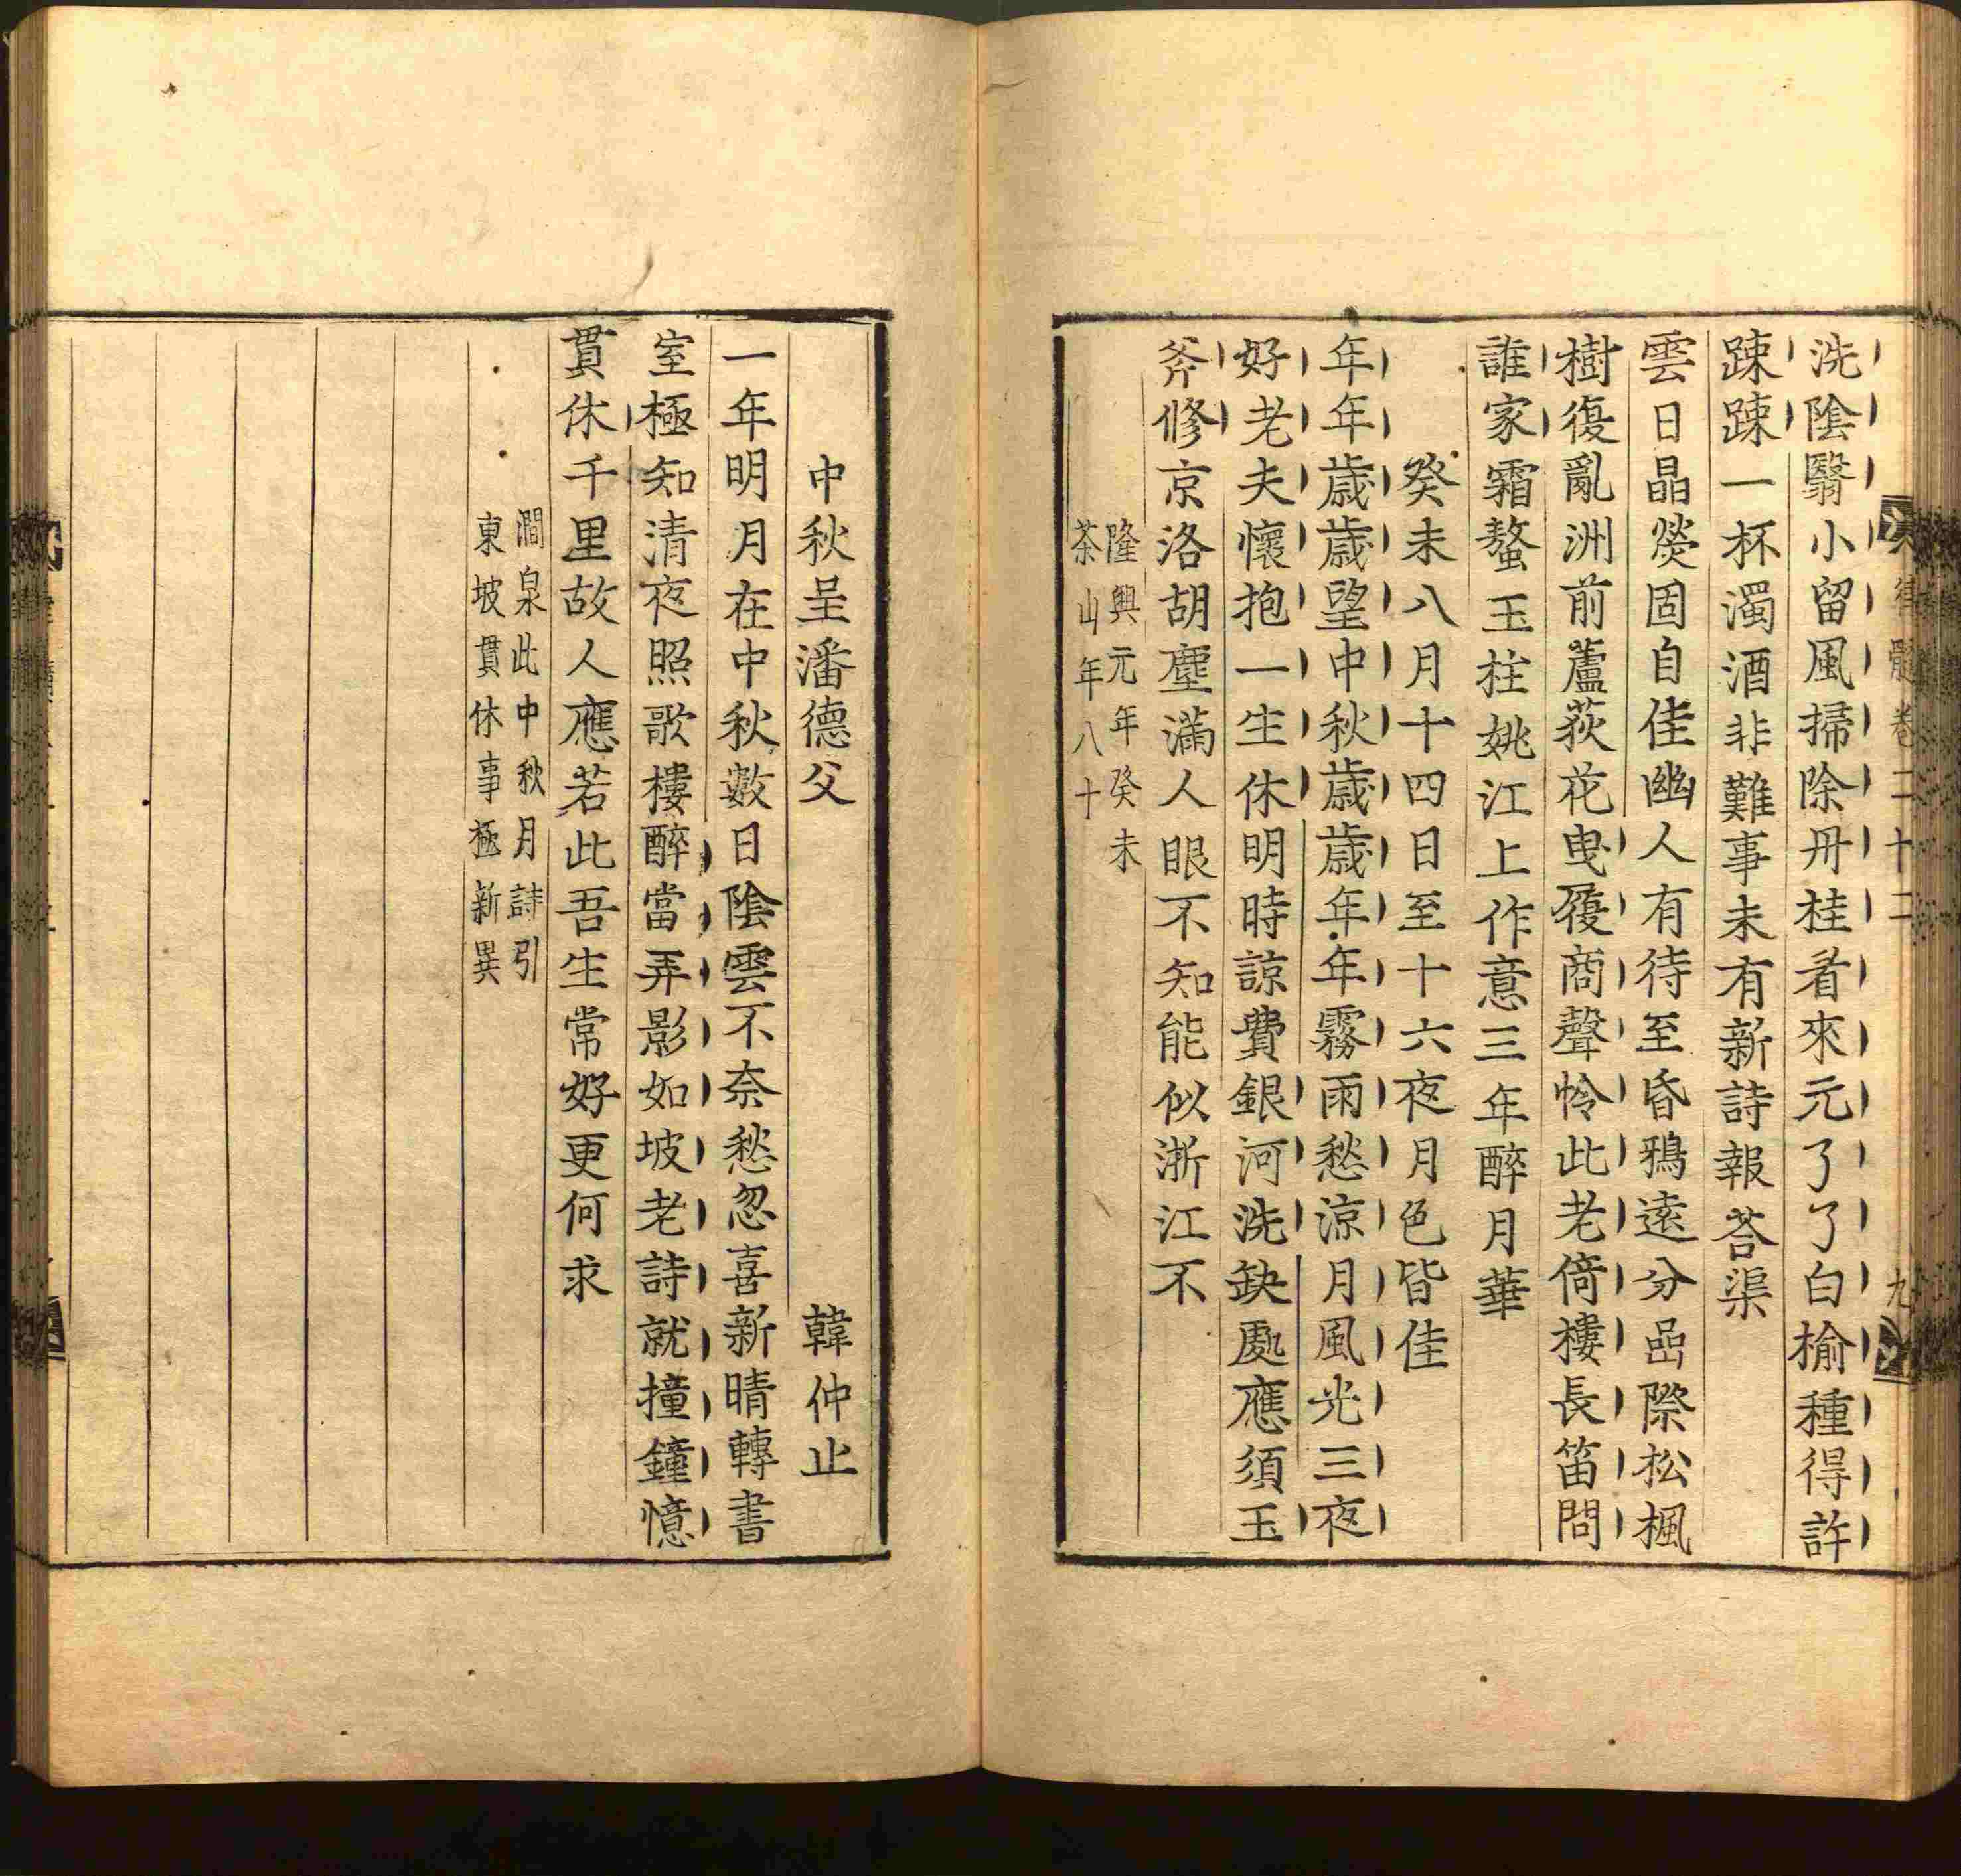 律髓卷二十二 九
洗陰翳小留風掃除丹桂看來元了了白榆種得許
踈踈一杯濁酒非難事未有新詩報荅渠
雲日晶熒固自佳幽人有待至昏鴉遠分嵒際松楓
樹復亂洲前蘆荻花曳履商聲怜此老倚樓長笛問
誰家霜螯玉柱姚江上作意三年醉月華
癸未八月十四日至十六夜月色皆佳
年年歲歲望中秋歲歲年年霧雨愁涼月風光三夜
好老夫懷抱一生休明時諒費銀河洗缺處應須玉
斧修京洛胡塵滿人眼不知能似浙江不
隆興元年癸未
茶山年八十
中秋呈潘德父 韓仲止
一年明月在中秋數日陰雲不奈愁忽喜新晴轉書
室極知清夜照歌樓醉當弄影如坡老詩就撞鐘憶
貫休千里故人應若此吾生常好更何求
澗泉此中秋月詩引
東坡貫休事極新異